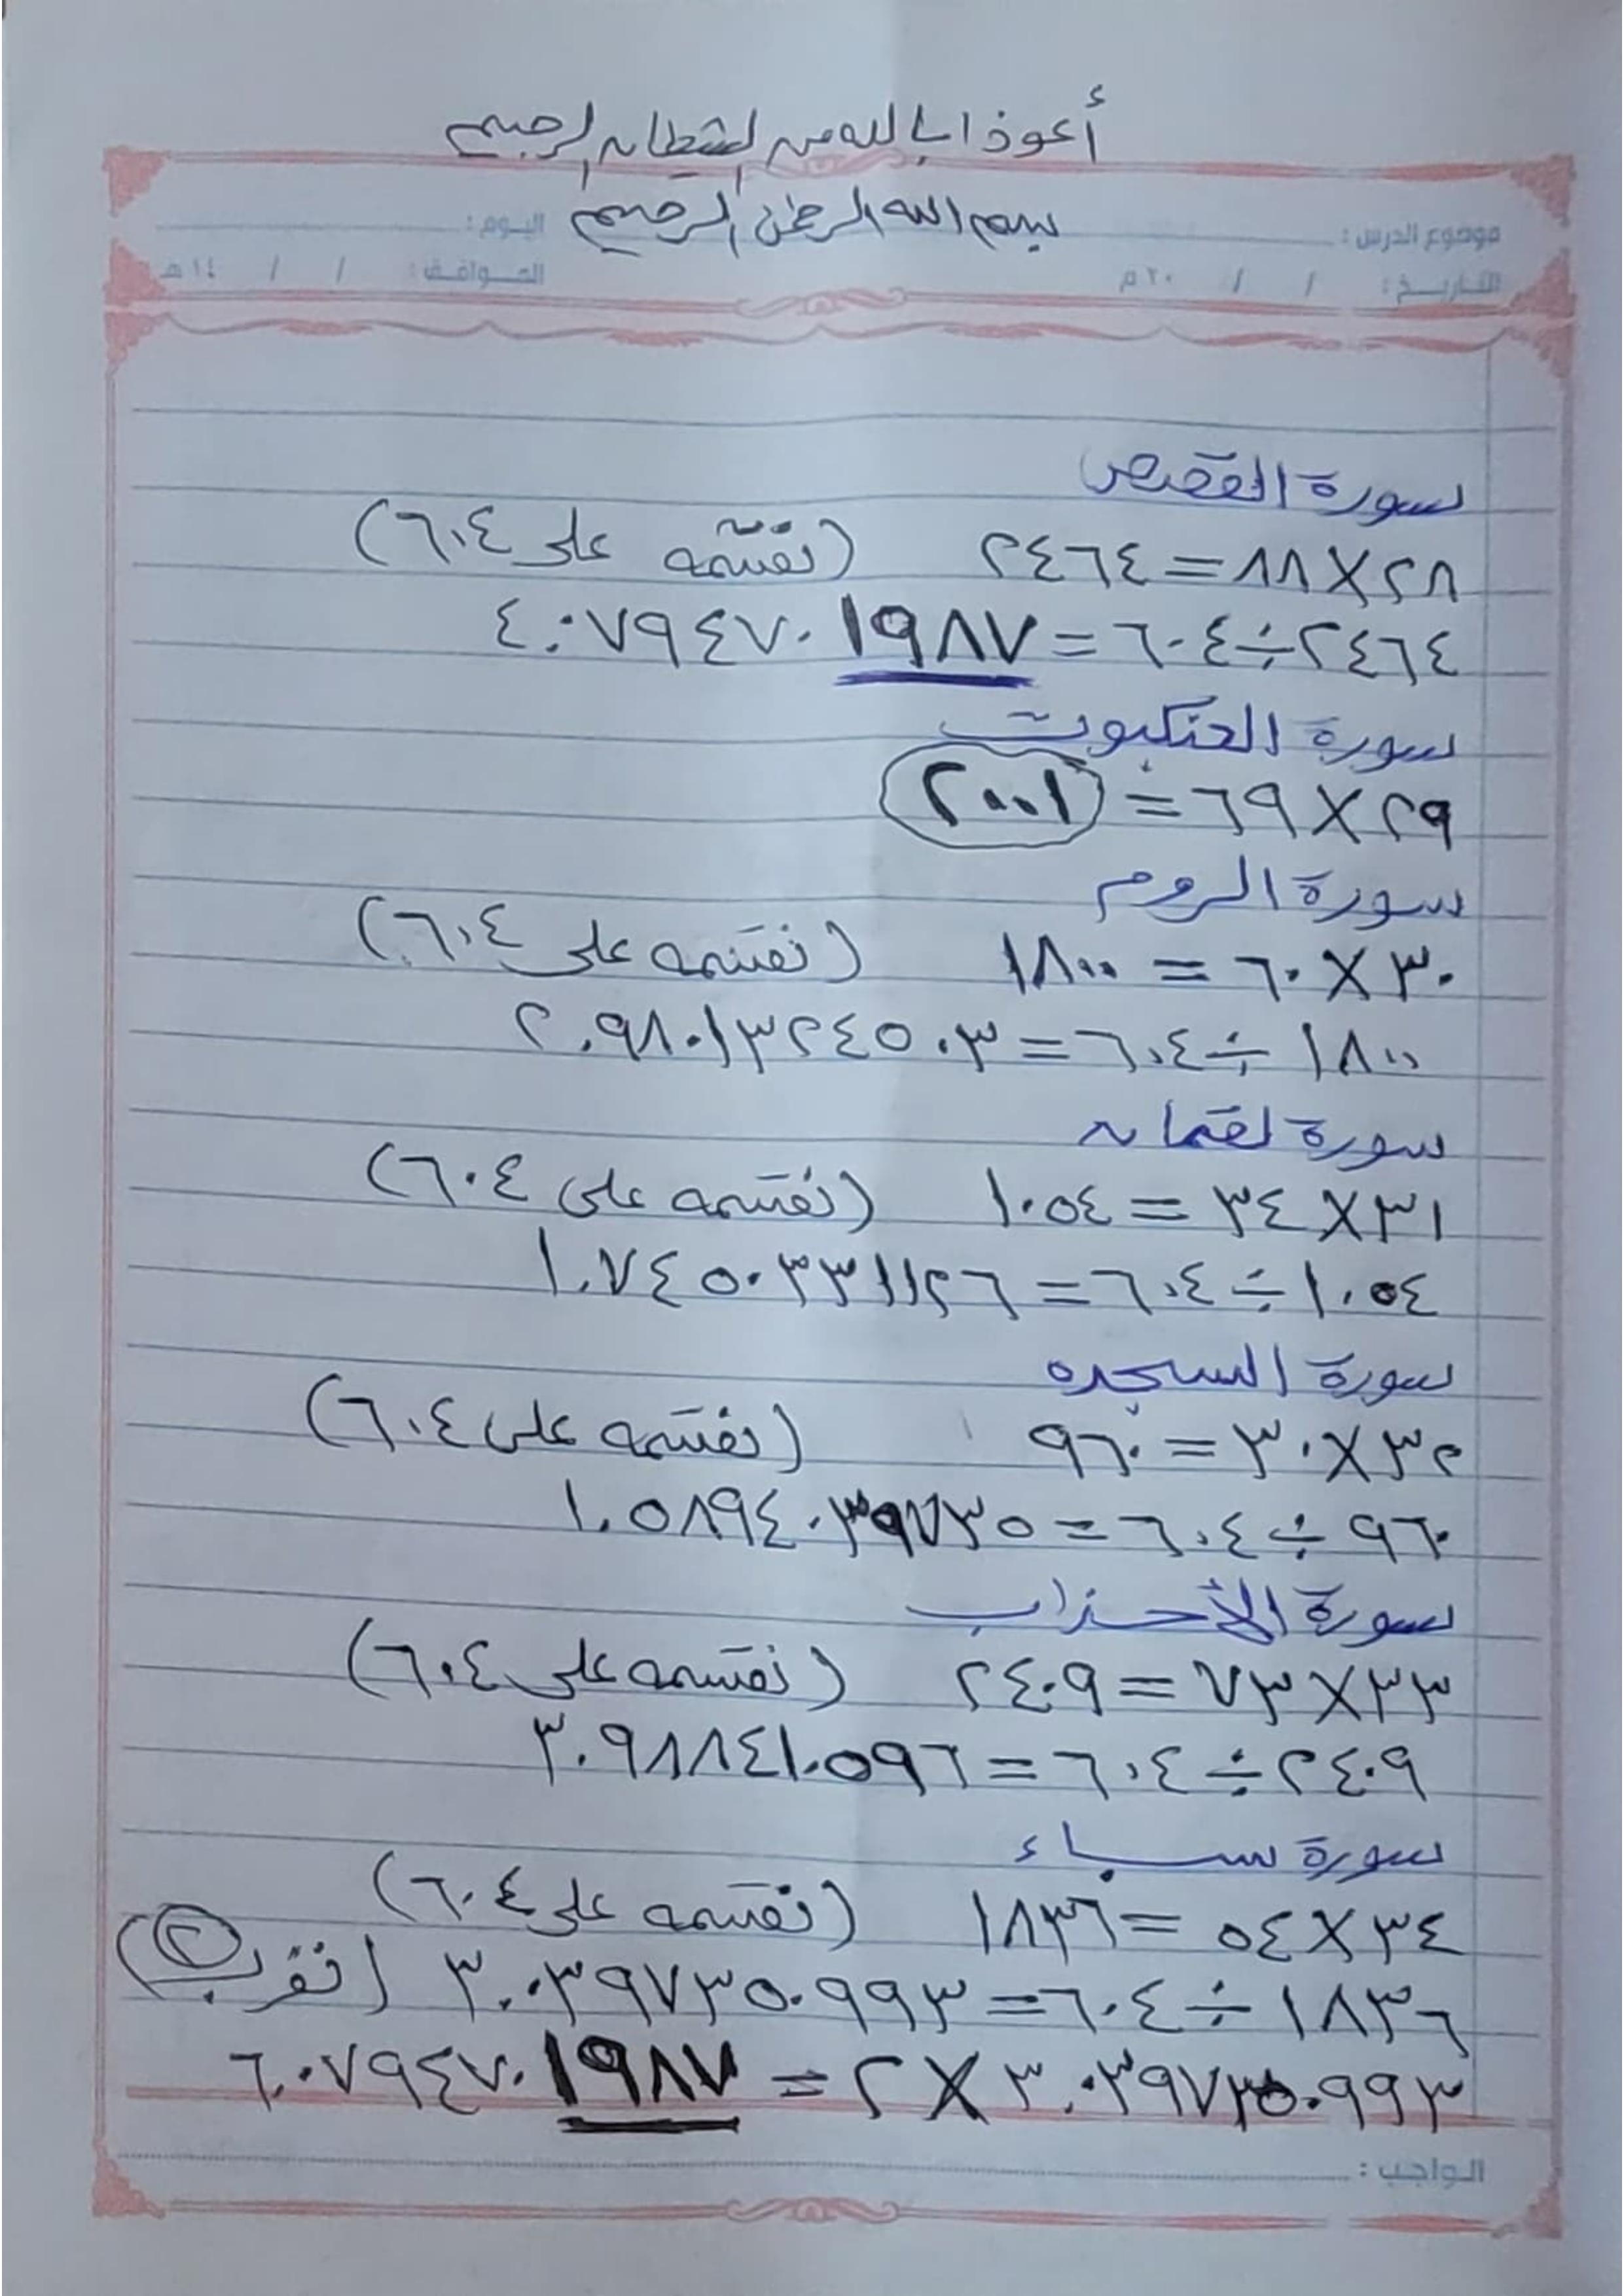 أعوذ بالله من الشيطان الرجيم
بسم الله الرحمن الرحيم
موضوع الدرس : اليوم :
التاريخ : / / ٢٠ م الموافق : / / ١٤ هـ
سورة القصص
٢٨×٨٨=٢٤٦٤ (نقسمه على ٦٠٤)
٢٤٦٤÷٦٠٤=٤.٠٧٩٤٧٠١٩٨٧
سورة العنكبوت
٢٩×٦٩=٢٠٠١
سورة الروم
٣٠×٦٠=١٨٠٠ (نقسمه على ٦٠٤)
١٨٠٠÷٦٠٤=٢.٩٨٠١٣٢٤٥٠٣
سورة لقمان
٣١×٣٤=١٠٥٤ (نقسمه على ٦٠٤)
١٠٥٤÷٦٠٤=١.٧٤٥٠٣٣١١٢٦
سورة السجده
٣٢×٣٠=٩٦٠ (نقسمه على ٦٠٤)
٩٦٠÷٦٠٤=١.٥٨٩٤٠٣٩٧٣٥
سورة الأحزاب
٣٣×٧٣=٢٤٠٩ (نقسمه على ٦٠٤)
٢٤٠٩÷٦٠٤=٣.٩٨٨٤١٠٥٩٦
سورة سباء
٣٤×٥٤=١٨٣٦ (نقسمه على ٦٠٤)
١٨٣٦÷٦٠٤=٣.٠٣٩٧٣٥٠٩٩٣ (نضرب ٢)
٣.٠٣٩٧٣٥٠٩٩٣×٢=٦.٠٧٩٤٧٠١٩٨٧
الواجب :